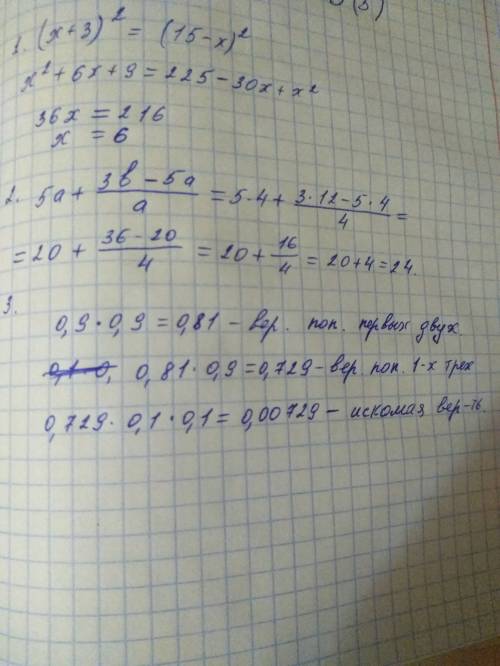 1. (x+3)² = (15-x)²
x²+6x+9=225-30x+x²
36x = 216
x = 6
2. 5a + (3b-5a)/a = 5·4 + (3·12-5·4)/4 =
= 20 + (36-20)/4 = 20 + 16/4 = 20+4=24.
3.
0,9·0,9=0,81 - вер. поп. первых двух
0,81·0,9=0,729 - вер. поп. 1-х трех
0,729·0,1·0,1=0,00729 - искомая вер-ть.